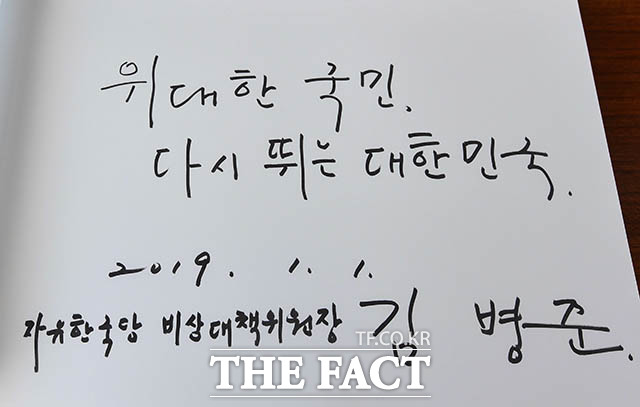 위대한 국민.
다시 뛰는 대한민국.
2019. 1. 1.
자유한국당 비상대책위원장 김 병준.
TF.CO.KR
THE FACT